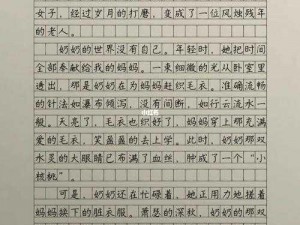 女子，经过岁月的打磨，变成了一位风烛残年
的老人。
奶奶的世界没有自己。年轻时，她把时间
全部奉献给我的妈妈。一束细微的光从卧室里
透出，那是奶奶在为妈妈赶织毛衣。准确流畅
的针法如瀑布倾泻，没有间断，如行云流水一
般。天亮了，毛衣也织好了，妈妈穿上那充满
爱的毛衣，笑盈盈的去上学。此时，奶奶那双
水灵的大眼睛已布满了血丝，肿成了一个“小
核桃”。
可是，奶奶还在忙碌着，她正用力地搓着
妈妈换下的脏衣服。萧瑟的深秋，奶奶的那双